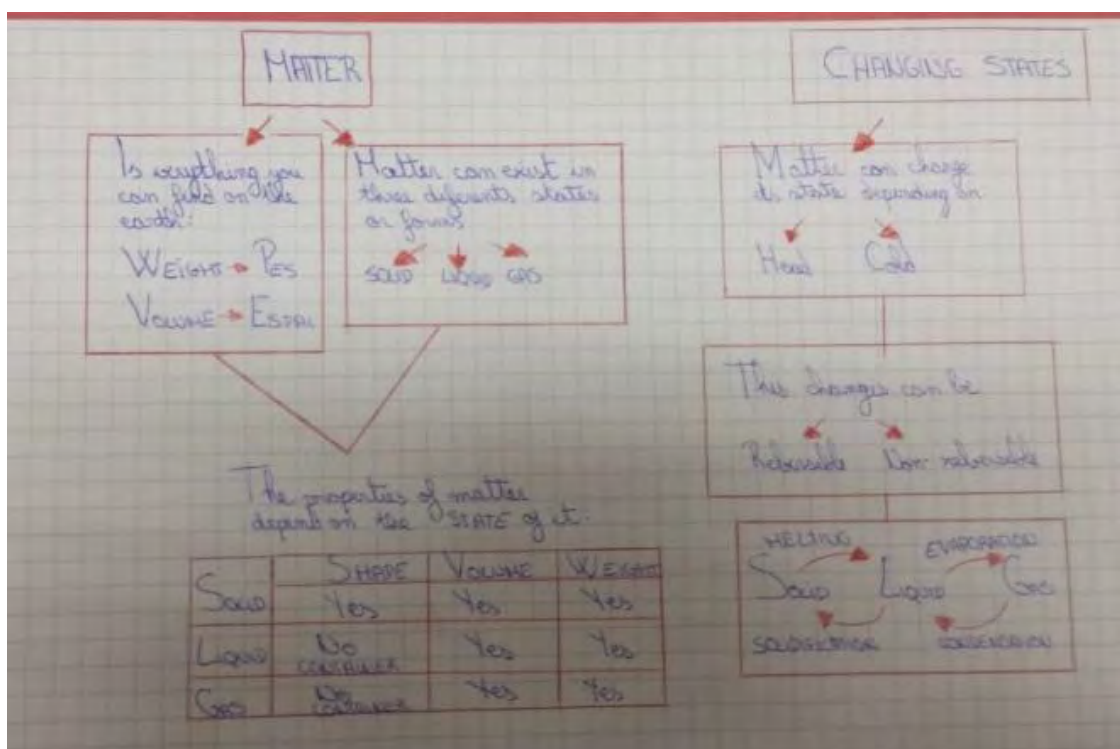 MATTER
Is everything you
can find on the
earth.
WEIGHT → PES
VOLUME → ESPAI
Matter can exist in
three diferents states
or forms
SOLID LIQUID GAS
The properties of matter
depend on the STATE of it.
SHAPE VOLUME WEIGHT
SOLID Yes Yes Yes
LIQUID No CONTAINER Yes Yes
GAS No CONTAINER Yes Yes
CHANGING STATES
Matter can change
its state depending on
Head Cold
This changes can be
Rebersible Non rebersible
MELTING EVAPORATION
SOLID LIQUID GAS
SOLIDIFICATION CONDENSATION